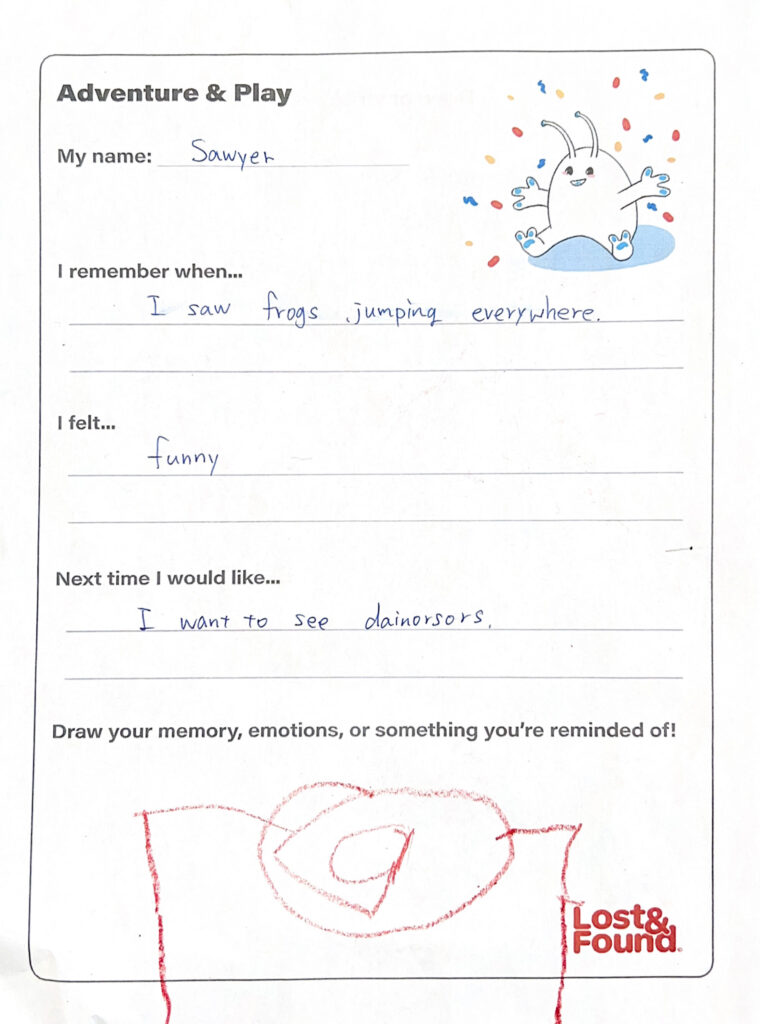 Adventure & Play
My name: Sawyer
I remember when...
I saw frogs jumping everywhere.
I felt...
funny
Next time I would like...
I want to see dainorsors.
Draw your memory, emotions, or something you're reminded of!
Lost&
Found